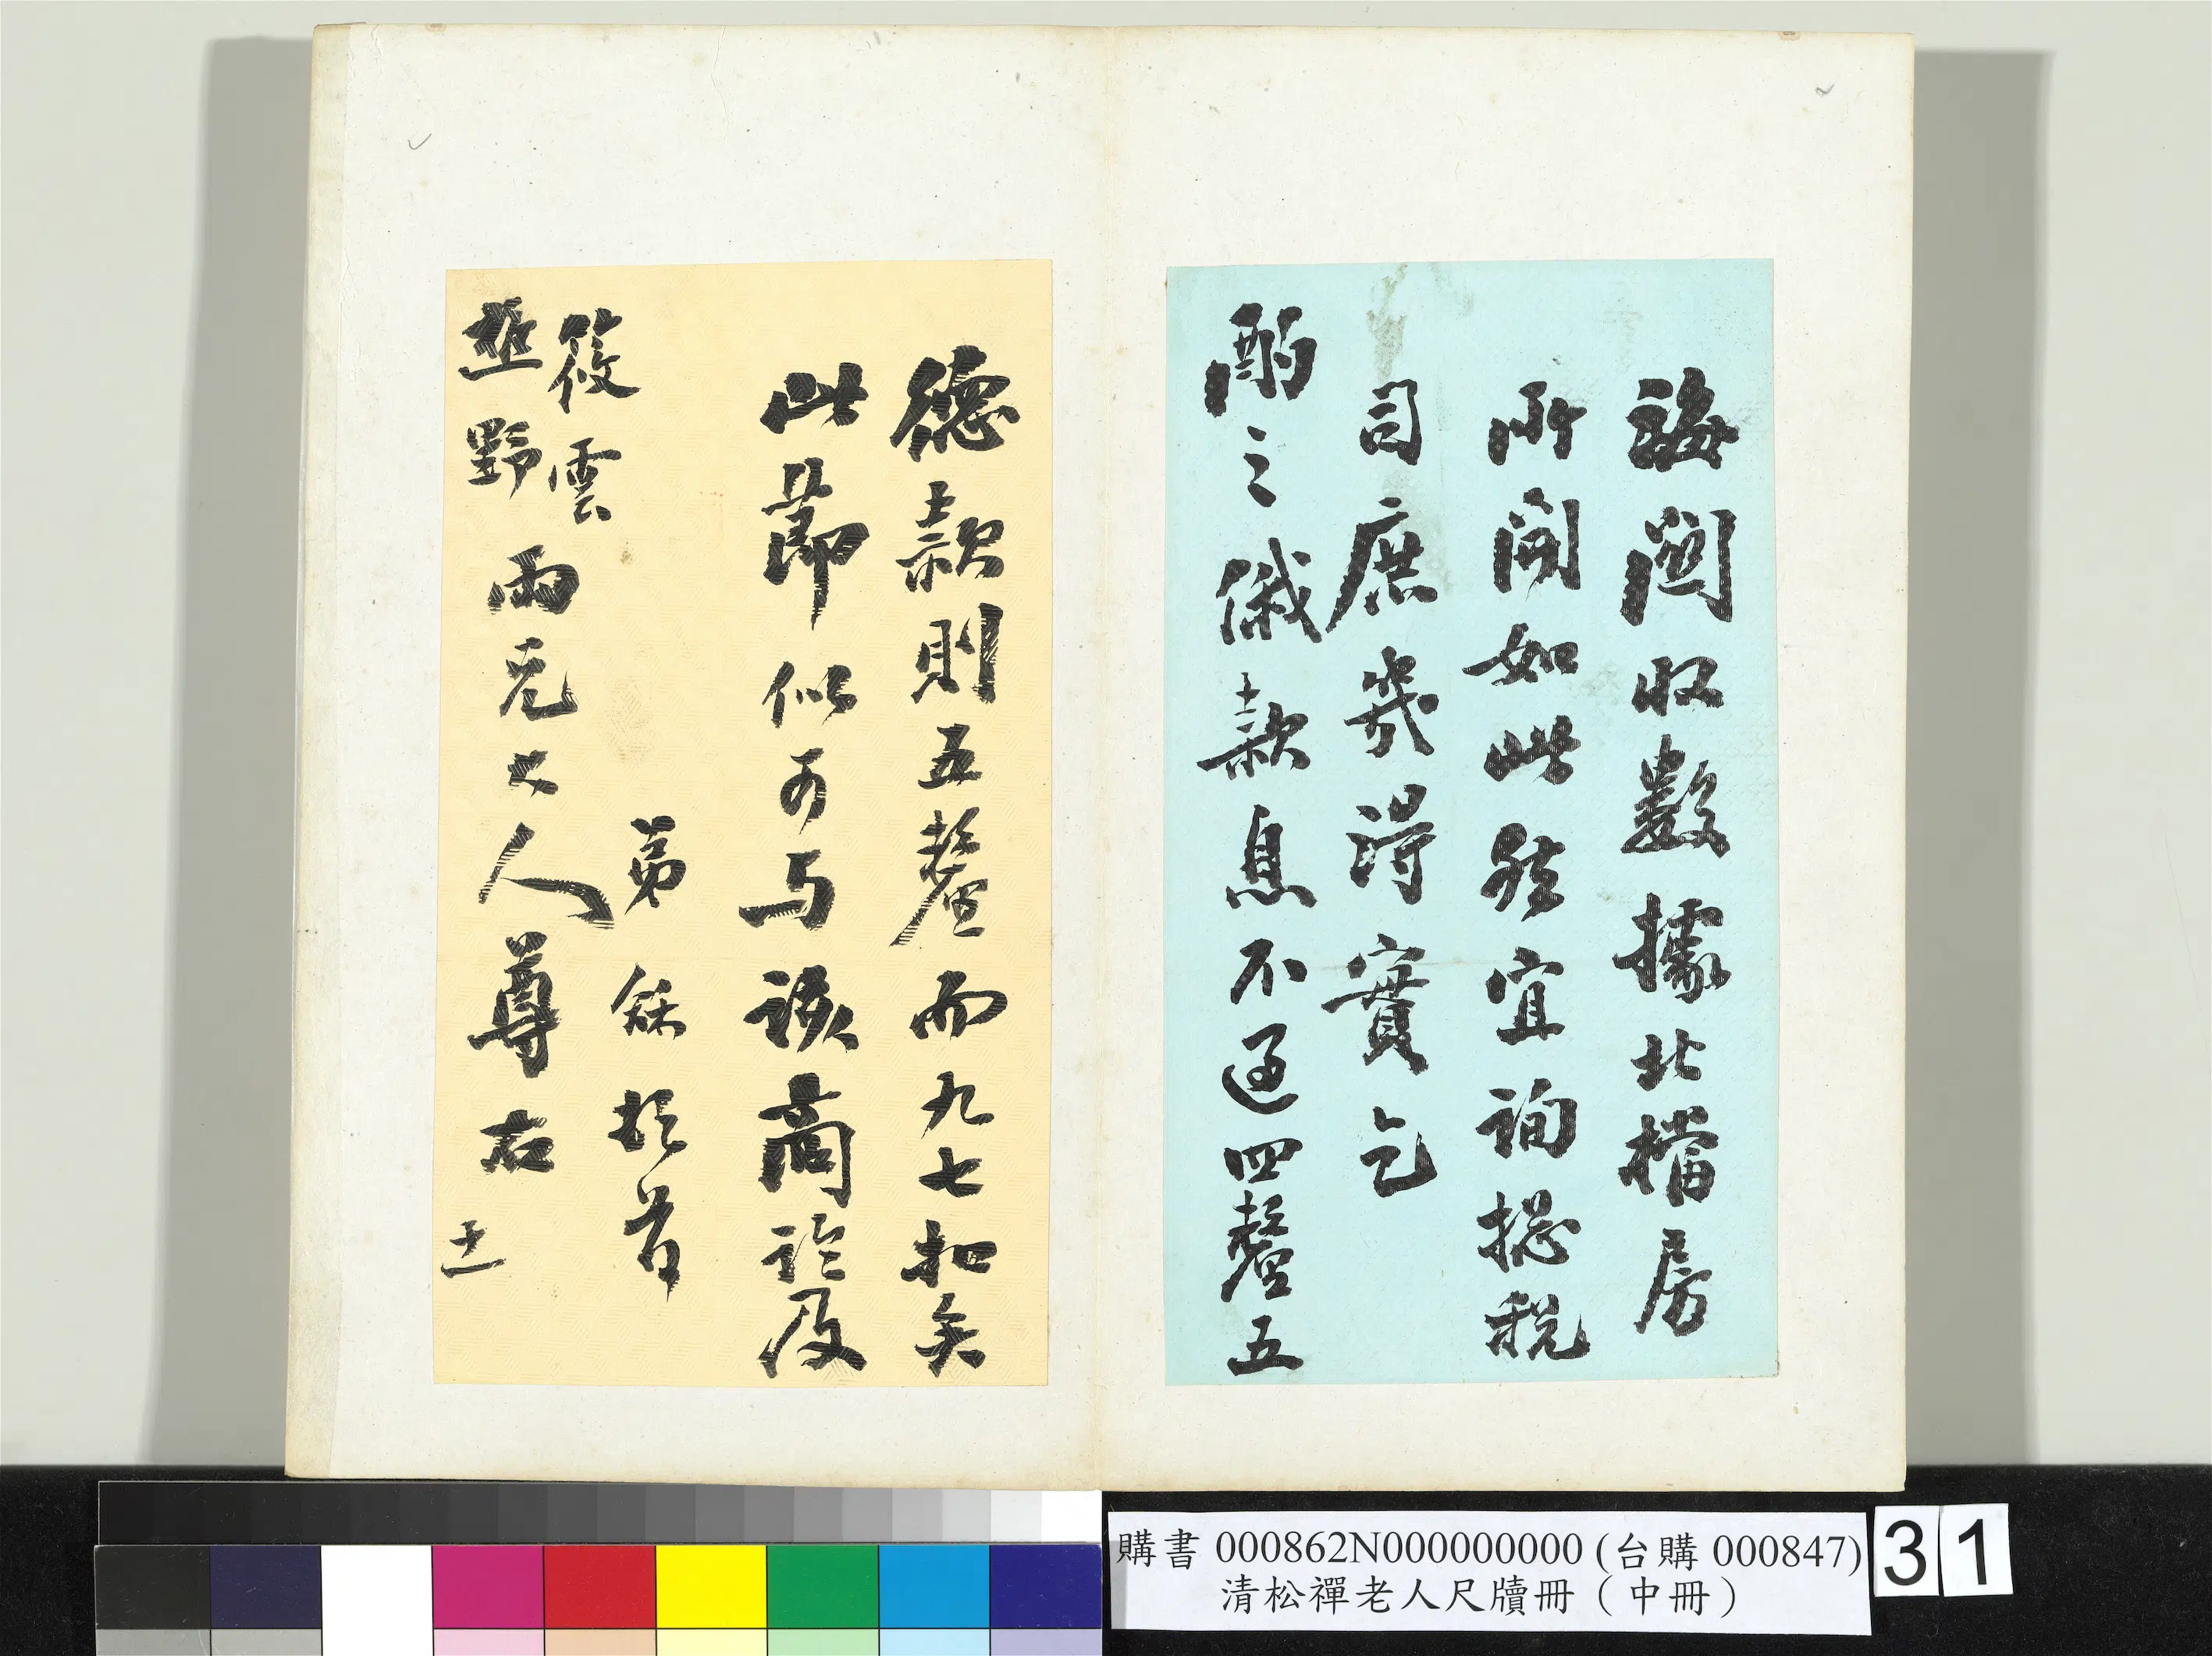 海關收數據北檔房
所開如此然宜詢總稅
司庶幾得實乞
酌之俄款息不過四釐五
德款則五釐而九七扣矣
此節似可与該商論及
弟龢頓首
筱雲
樵野兩兄大人尊右
購書 000862N000000000 (台購 000847)
清松禪老人尺牘冊（中冊）
31